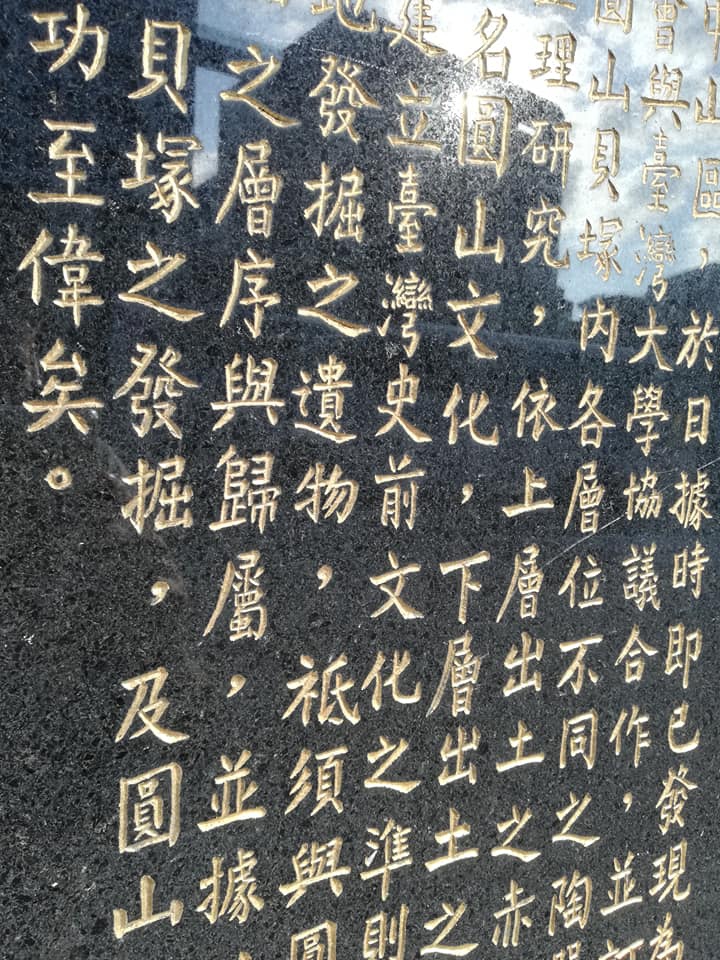 中山區，於日據時即已發現為
會與臺灣大學協議合作，並訂
圓山貝塚內各層位不同之陶
理研究，依上層出土之赤
名圓山文化，下層出土之
建立臺灣史前文化之準則
地發掘之遺物，祗須與圓
之層序與歸屬，並據
貝塚之發掘，及圓山
功至偉矣。